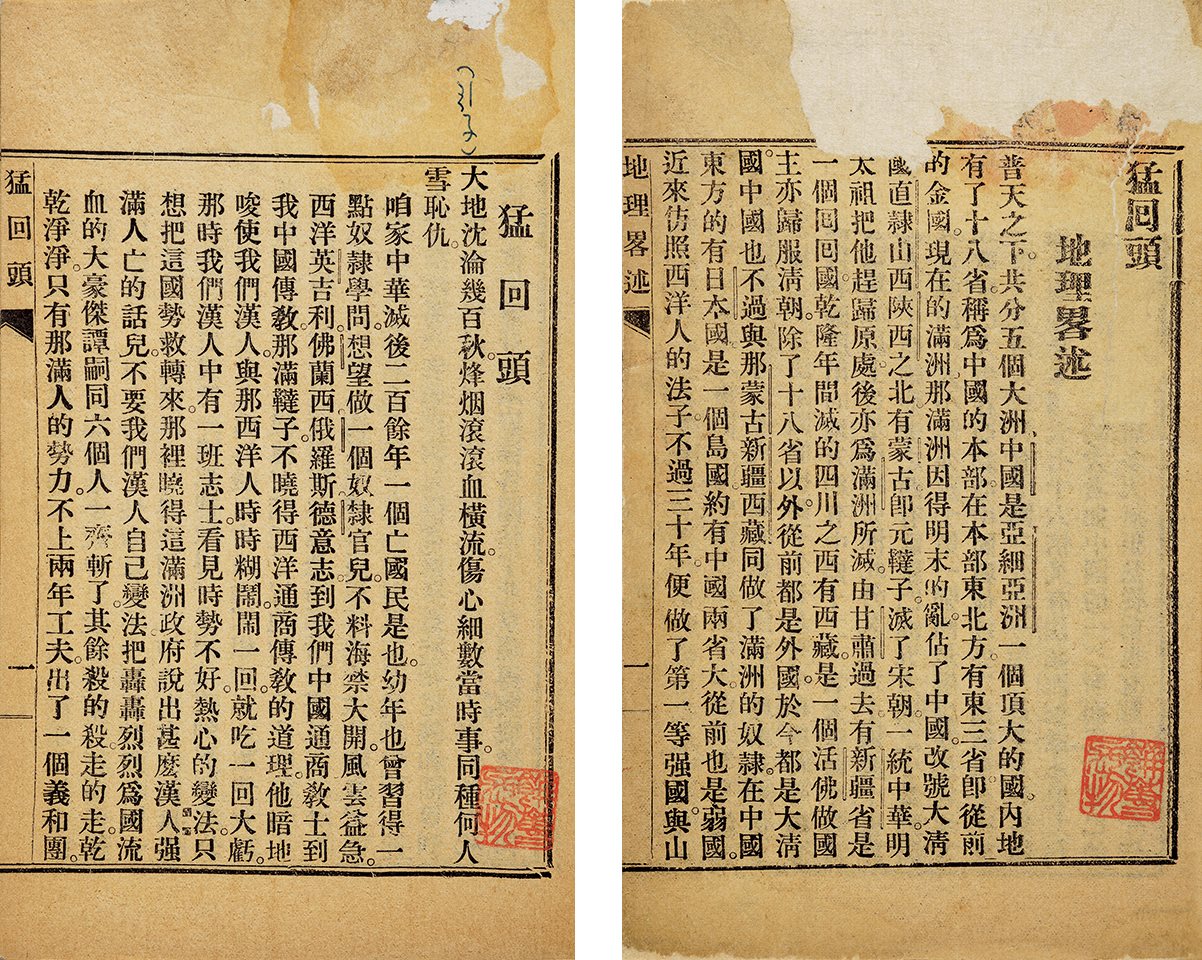 猛回頭
地理畧述
普天之下。共分五個大洲、中國是亞細亞洲一個頂大的國、內地
有了十八省。稱爲中國的本部。在本部東北方有東三省。卽從前
的金國。現在的滿洲。那滿洲因得明末的亂。佔了中國。改號大淸
國。直隸山西陝西之北。有蒙古。卽元韃子。滅了宋朝。一統中華。明
太祖把他趕歸原處。後亦爲滿洲所滅。由甘肅過去有新疆省。是
一個回回國。乾隆年間滅的。四川之西有西藏。是一個活佛做國
主。亦歸服淸朝。除了十八省以外。從前都是外國。於今都是大淸
國。中國也不過與那蒙古新疆西藏同做了滿洲的奴隸。在中國
東方的有日本國。是一個島國。約有中國兩省大。從前也是弱國。
近來仿照西洋人的法子。不過三十年。便做了第一等强國。與山
地理畧述 一
(引子)
猛回頭
大地沈淪幾百秋。烽烟滾滾血橫流。傷心細數當時事。同種何人
雪恥仇。
咱家中華滅後二百餘年一個亡國民是也。幼年也曾習得一
點奴隸學問。想望做一個奴隸官兒。不料海禁大開。風雲益急。
西洋英吉利。佛蘭西。俄羅斯。德意志。到我們中國通商。敎士到
我中國傳敎。那滿韃子。不曉得西洋通商傳敎的道理。他暗地
唆使我們漢人。與那西洋人時時糊鬧。鬧一回。就吃一回大虧。
那時我們漢人中有一班志士。看見時勢不好。熱心的變法。只
想把這國勢救轉來。那裡曉得這滿洲政府說出甚麼漢人强
滿人亡的話兒。不要我們漢人自己變法。把轟轟烈烈爲國流
血的大豪傑譚嗣同六個人一齊斬了。其餘殺的殺。走的走。乾
乾淨淨。只有那滿人的勢力。不上兩年工夫。出了一個義和團。
猛回頭 一